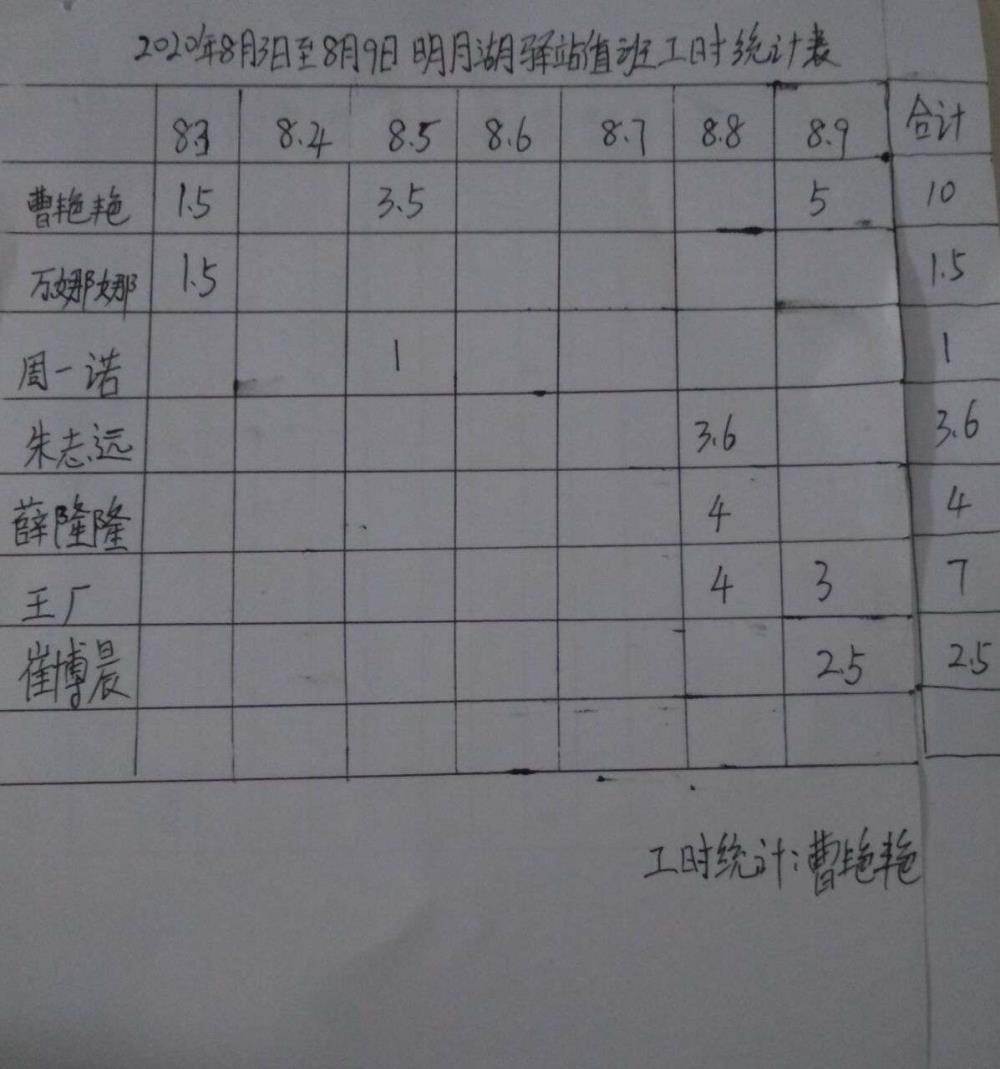 2020年8月3日至8月9日 明月湖驿站值班工时统计表
8.3 8.4 8.5 8.6 8.7 8.8 8.9 合计
曹艳艳 1.5 3.5 5 10
万娜娜 1.5 1.5
周一诺 1 1
朱志远 3.6 3.6
薛隆隆 4 4
王厂 4 3 7
崔博晨 2.5 2.5
工时统计:曹艳艳